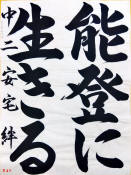 能登に
生きる
中二 安宅 絆